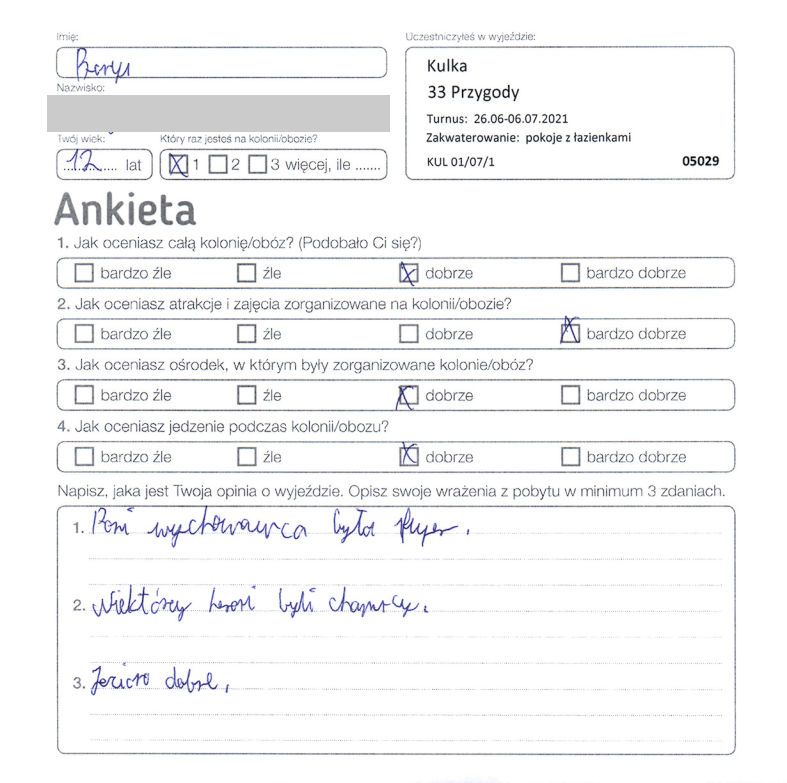 Imię:
Borys
Nazwisko:
Twój wiek:
12 lat
Który raz jesteś na kolonii/obozie?
1 2 3 więcej, ile .......
Uczestniczyłeś w wyjeździe:
Kulka
33 Przygody
Turnus: 26.06-06.07.2021
Zakwaterowanie: pokoje z łazienkami
KUL 01/07/1 05029
Ankieta
1. Jak oceniasz całą kolonię/obóz? (Podobało Ci się?)
bardzo źle źle dobrze bardzo dobrze
2. Jak oceniasz atrakcje i zajęcia zorganizowane na kolonii/obozie?
bardzo źle źle dobrze bardzo dobrze
3. Jak oceniasz ośrodek, w którym były zorganizowane kolonie/obóz?
bardzo źle źle dobrze bardzo dobrze
4. Jak oceniasz jedzenie podczas kolonii/obozu?
bardzo źle źle dobrze bardzo dobrze
Napisz, jaka jest Twoja opinia o wyjeździe. Opisz swoje wrażenia z pobytu w minimum 3 zdaniach.
1. Pani wychowawca była
2. Niektórzy byli
3. Jezioro dobre.